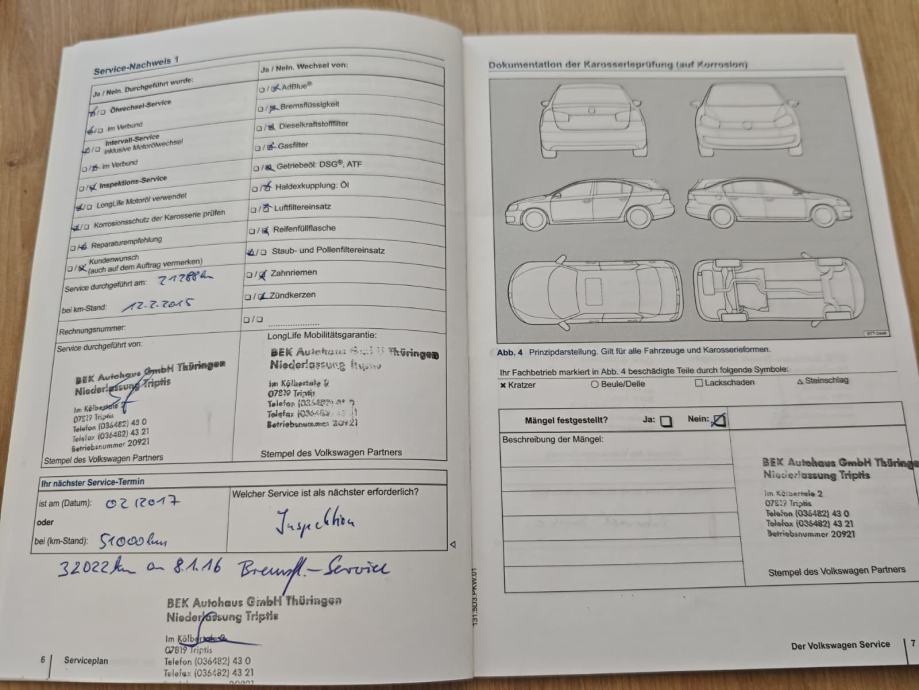 Service-Nachweis 1
Ja / Nein. Durchgeführt wurde:
Ölwechsel-Service
im Verbund
Intervall-Service
inklusive Motorölwechsel
im Verbund
Inspektions-Service
LongLife Motoröl verwendet
Korrosionsschutz der Karosserie prüfen
Reparaturempfehlung
Kundenwunsch
(auch auf dem Auftrag vermerken)
Service durchgeführt am: 21288km
bei km-Stand: 12.2.2015
Rechnungsnummer:
Ja / Nein. Wechsel von:
AdBlue®
Bremsflüssigkeit
Dieselkraftstofffilter
Gasfilter
Getriebeöl: DSG®, ATF
Haldexkupplung: Öl
Luftfiltereinsatz
Reifenfüllflasche
Staub- und Pollenfiltereinsatz
Zahnriemen
Zündkerzen
Service durchgeführt von:
BEK Autohaus GmbH Thüringen
Niederlassung Triptis
Im Kölbertale 2
07819 Triptis
Telefon (036482) 43 0
Telefax (036482) 43 21
Betriebsnummer 20921
Stempel des Volkswagen Partners
LongLife Mobilitätsgarantie:
BEK Autohaus GmbH Thüringen
Niederlassung
Im Kölbertale 2
07819 Triptis
Telefon (036482)
Telefax (036482)
Betriebsnummer 20921
Stempel des Volkswagen Partners
Ihr nächster Service-Termin
ist am (Datum): 02/2017
oder
bei (km-Stand): 51000km
Welcher Service ist als nächster erforderlich?
Inspektion
32022km am 8.1.16 Bremsfl.-Service
BEK Autohaus GmbH Thüringen
Niederlassung Triptis
Im Kölbertale
07819 Triptis
Telefon (036482) 43 0
Telefax (036482) 43 21
6 Serviceplan
Dokumentation der Karosserieprüfung (auf Korrosion)
Abb. 4 Prinzipdarstellung. Gilt für alle Fahrzeuge und Karosserieformen.
Ihr Fachbetrieb markiert in Abb. 4 beschädigte Teile durch folgende Symbole:
Kratzer Beule/Delle Lackschaden Steinschlag
Mängel festgestellt? Ja: Nein:
Beschreibung der Mängel:
BEK Autohaus GmbH Thüringe
Niederlassung Triptis
Im Kölbertale 2
07819 Triptis
Telefon (036482) 43 0
Telefax (036482) 43 21
Betriebsnummer 20921
Stempel des Volkswagen Partners
131.5D3.PKW.01
Der Volkswagen Service 7